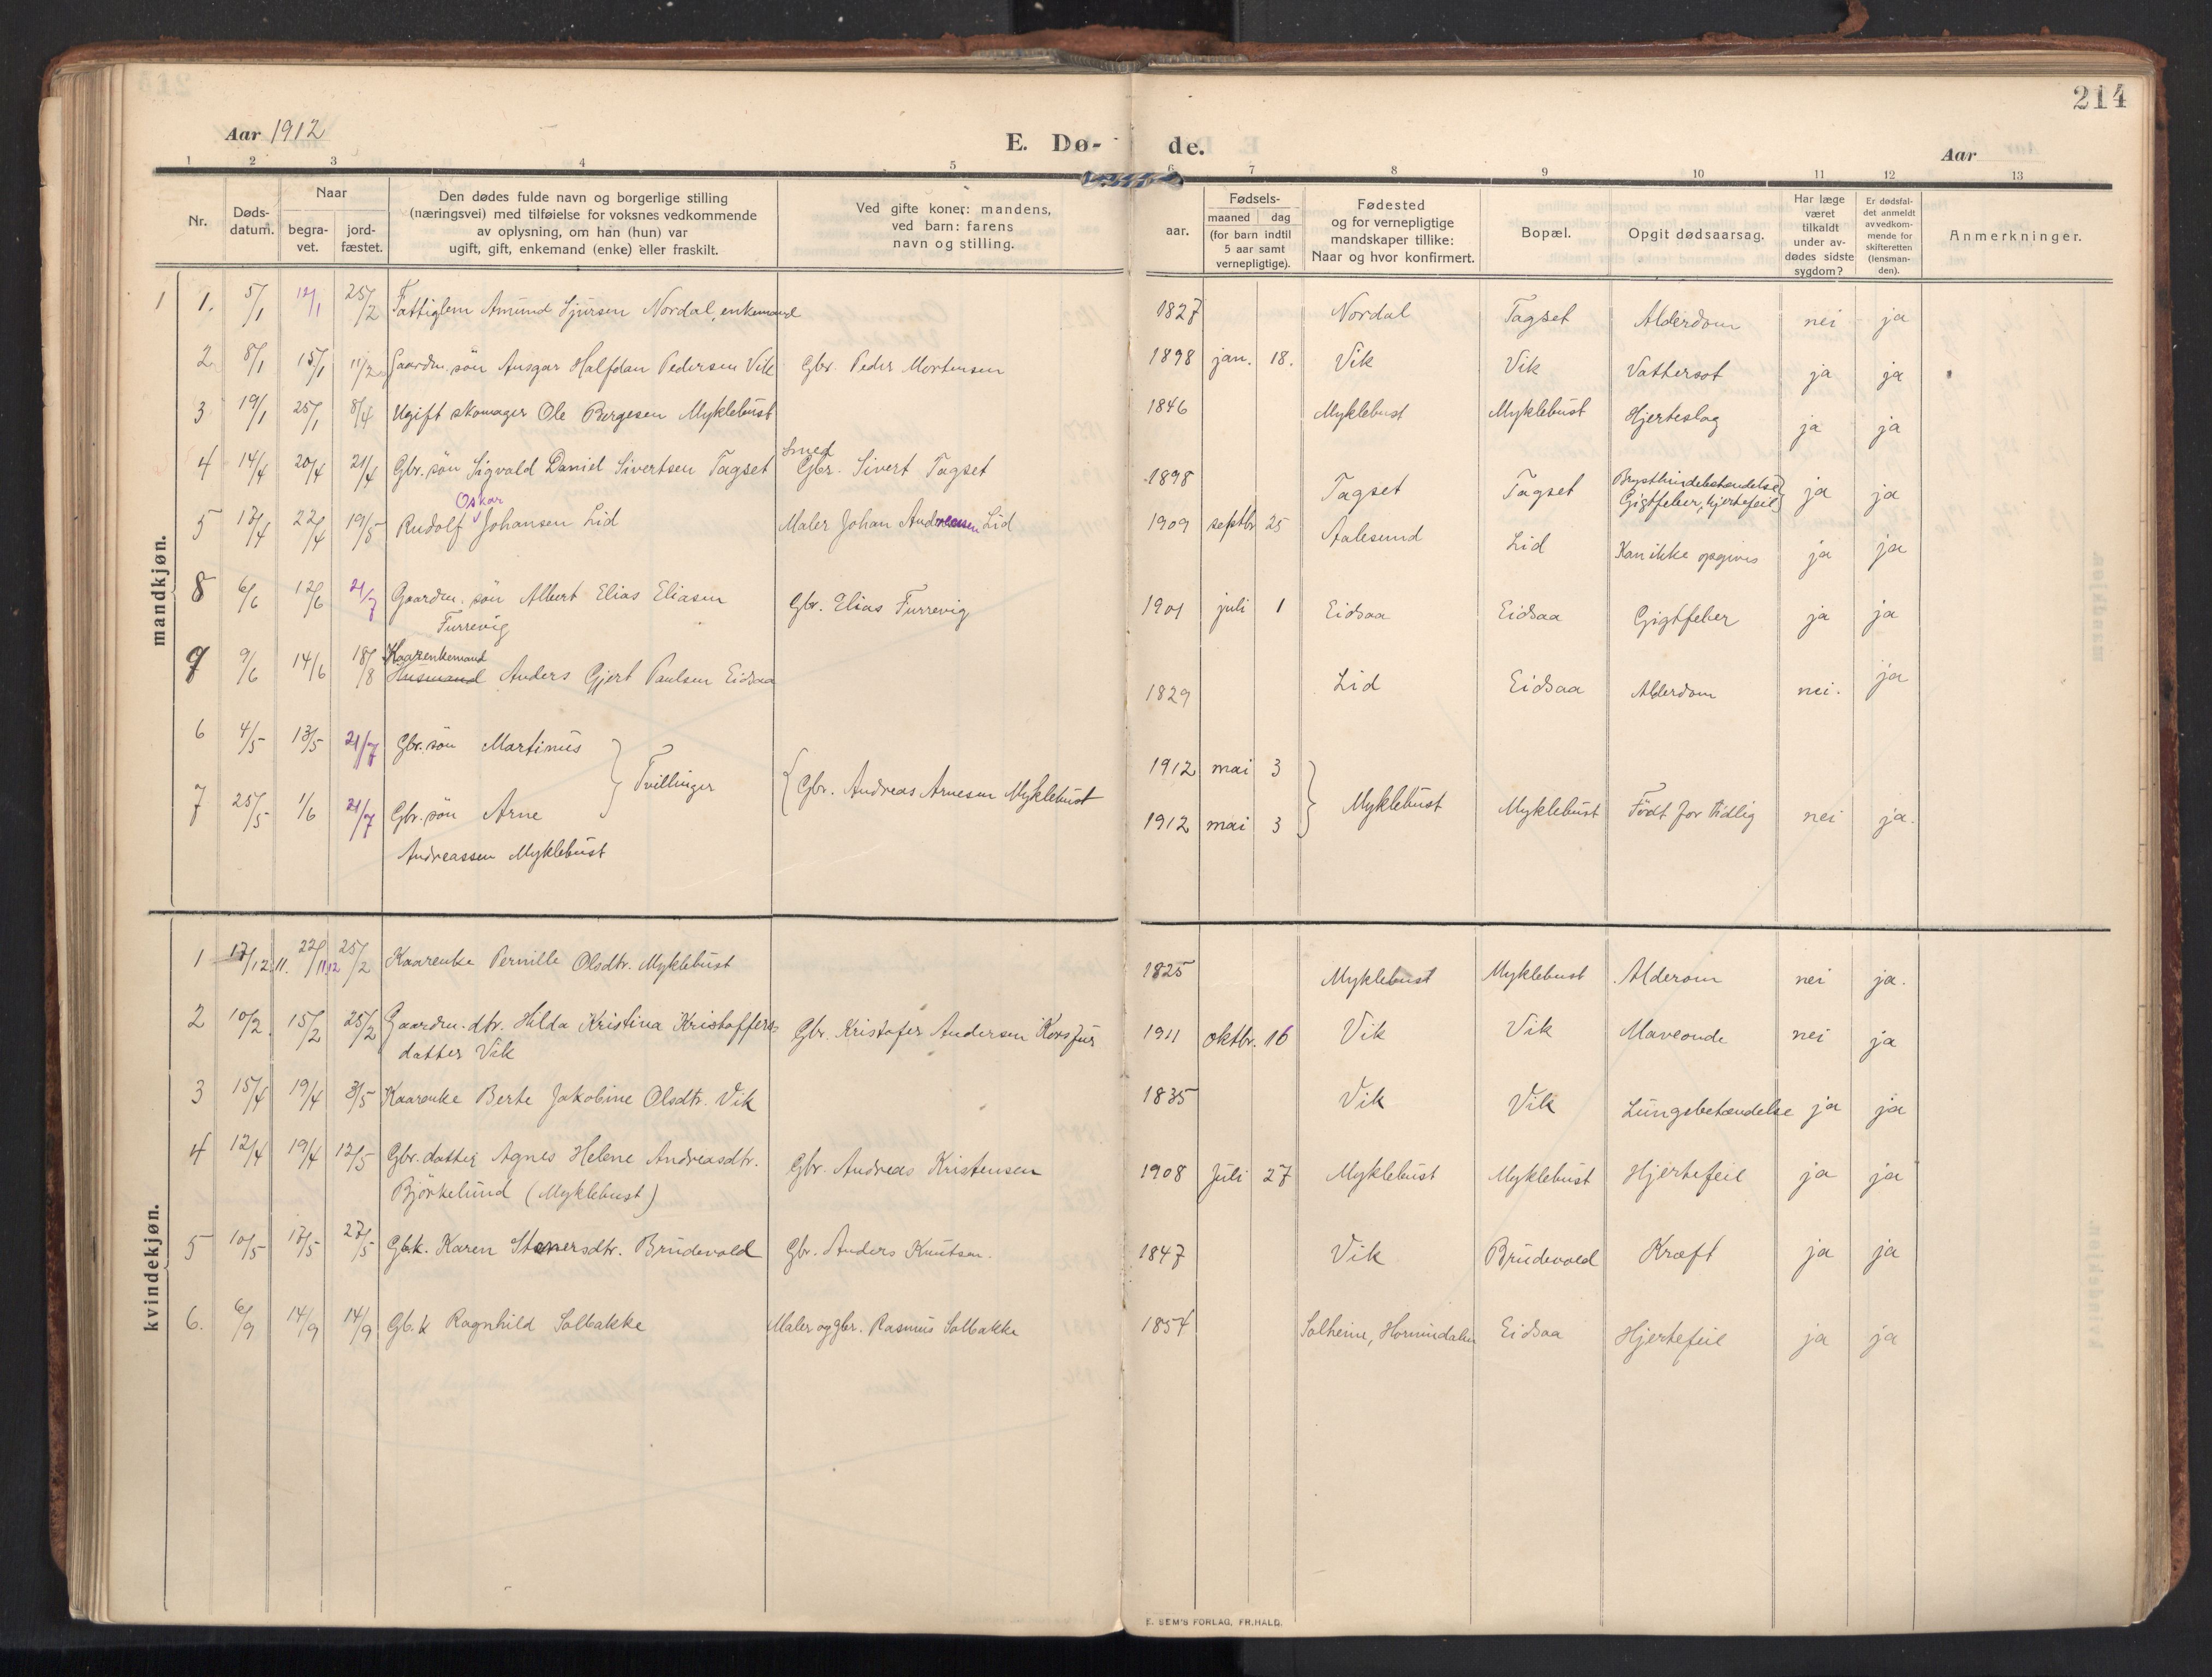 214
Aar 1912
E. Dø- de.
Aar
1 2 3 4 5 6 7 8 9 10 11 12 13
Nr.
Døds-
datum.
Naar
begra-
vet.
jord-
fæstet.
Den dødes fulde navn og borgerlige stilling
(næringsvei) med tilføielse for voksnes vedkommende
av oplysning, om han (hun) var
ugift, gift, enkemand (enke) eller fraskilt.
Ved gifte koner: mandens,
ved barn: farens
navn og stilling.
Fødsels-
aar.
maaned dag
(for barn indtil
5 aar samt
vernepligtige).
Fødested
og for vernepligtige
mandskaper tillike:
Naar og hvor konfirmert.
Bopæl.
Opgit dødsaarsag.
Har læge
været
tilkaldt
under av-
dødes sidste
sygdom?
Er dødsfal-
det anmeldt
av vedkom-
mende for
skifteretten
(lensman-
den).
Anmerkninger.
mandkjøn.
1 1. 5/1 12/1 25/2 Fattiglem Amund Sjursen Nordal, enkemand 1827 Nordal Tagset Alderdom nei ja
2 8/1 15/1 11/2 Gaardm. søn Ansgar Halfdan Pedersen Vik Gbr. Peder Mortensen 1898 jan. 18. Vik Vik Vattersot ja ja
3 19/1 25/1 8/4 Ugift skomager Ole Børgesen Myklebust 1846 Myklebust Myklebust Hjerteslag ja ja
Smed
4 14/4 20/4 21/4 Gbr. søn Sigvald Daniel Sivertsen Tagset Gbr. Sivert Tagset 1898 Tagset Tagset Brysthindebetændelse
Gigtfeber, hjertefeil ja ja
Oskar
5 17/4 22/4 19/5 Rudolf Johansen Lid Maler Johan Andreasen Lid 1909 septbr 25 Aalesund Lid Kan ikke opgives ja ja
8 6/6 12/6 21/7 Gaardm. søn Albert Elias Eliasen Gbr. Elias Furrevig 1901 juli 1 Eidsaa Eidsaa Gigtfeber ja ja
Furrevig
Kaarenkemand
9 9/6 14/6 18/8 Husmand Anders Gjert Paulsen Eidsaa 1829 Lid Eidsaa Alderdom nei. ja
6 4/5 13/5 21/7 Gbr. søn Martinus 1912 mai 3
Tvillinger Gbr. Andreas Arnesen Myklebust Myklebust Myklebust Født for tidlig nei ja.
7 25/5 1/6 21/7 Gbr. søn Arne 1912 mai 3
Andreassen Myklebust
kvindekjøn.
1 17/12.11. 22/11.12 25/2 Kaarenke Pernille Olsdtr. Myklebust 1825 Myklebust Myklebust Alderom nei ja.
2 10/2. 15/2 25/2 Gaardm. dtr. Hilda Kristina Kristoffers- Gbr. Kristofer Andersen Korsfur 1911 oktbr. 16 Vik Vik Maveonde nei ja
datter Vik
3 15/4 19/4 3/5 Kaarenke Berte Jakobine Olsdtr. Vik 1835 Vik Vik Lungebetændelse ja ja
4 12/4 19/4 12/5 Gbr. datter Agnes Helene Andreasdtr. Gbr. Andreas Kristensen 1908 juli 27 Myklebust Myklebust Hjertefeil ja ja
Bjørkelund (Myklebust)
5 10/5 17/5 27/5 Gb.k. Karen Stenersdtr. Brudevold Gbr. Anders Knutsen. 1847 Vik Brudevold Kræft ja ja
6. 6/9 14/9 14/9 Gb.k Ragnhild Solbakke Maler og gbr. Rasmus Solbakke 1854 Solheim, Hornindalen Eidsaa Hjertefeil ja ja
E. SEM'S FORLAG, FR.HALD.